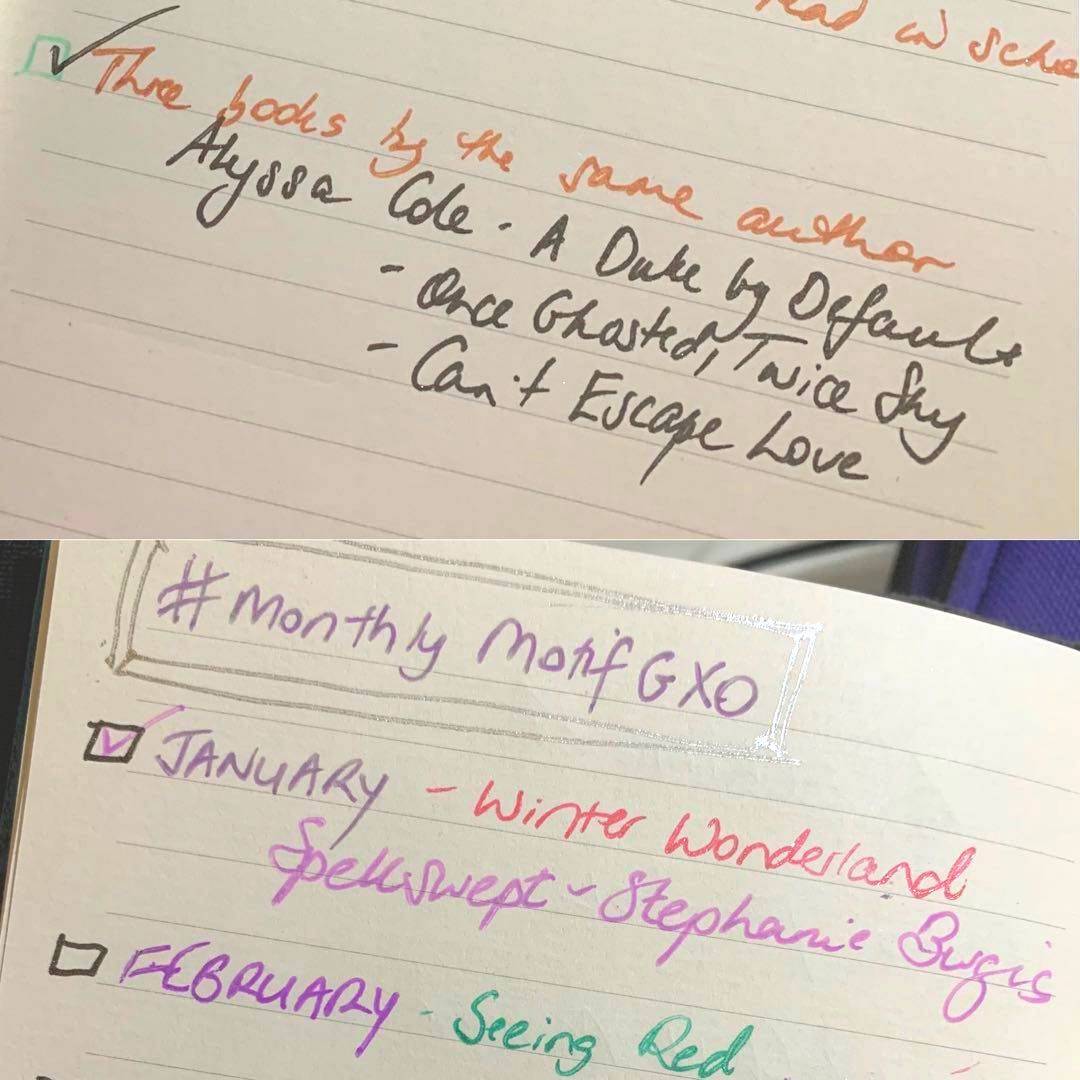 read in
Three books by the same author
Alyssa Cole - A Duke by Default
- Once Ghosted, Twice Shy
- Can't Escape Love
#Monthly Motif GXO
JANUARY - Winter Wonderland
Spellswept - Stephanie Burgis
FEBRUARY - Seeing Red